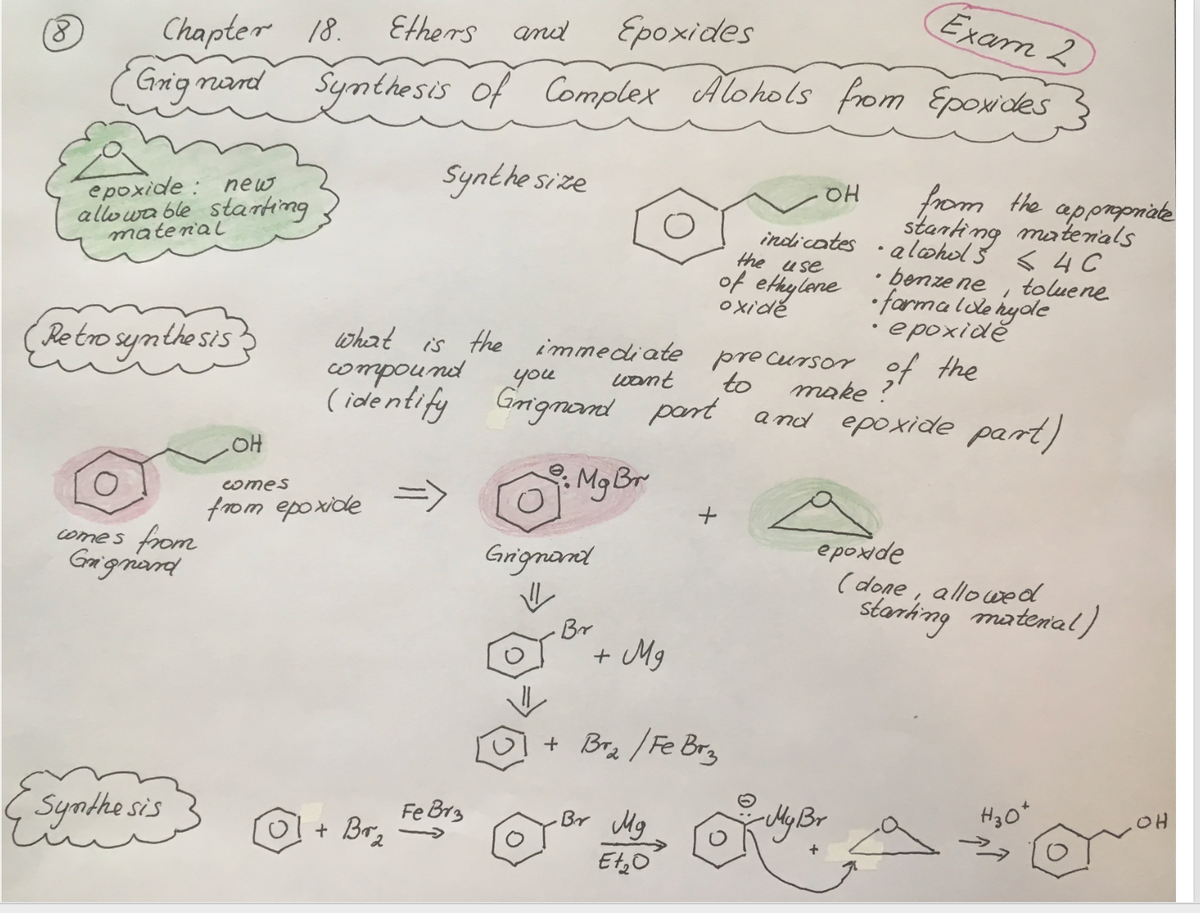 8 Chapter 18. Ethers and Epoxides
Exam 2
Grignard Synthesis of Complex Alohols from Epoxides
O
epoxide: new
allowable starting
material
Synthesize
OH
indicates
the use
of ethylene
oxide
from the appropriate
starting materials
• alcohols ≤ 4 C
• benzene, toluene
• formaldehyde
• epoxide
Retrosynthesis
What is the immediate precursor of the
compound you want to make?
(identify Grignard part and epoxide part)
OH
comes
from epoxide
comes from
Grignard
⇒
⊖:MgBr
Grignard
+
O
epoxide
(done, allowed
starting material)
⇓
Br
+ Mg
⇓
+ Br₂ / FeBr₃
Synthesis
+ Br₂ FeBr₃ → Br Mg Et₂O → ⊖ MgBr + O H₃O⁺ →→ OH